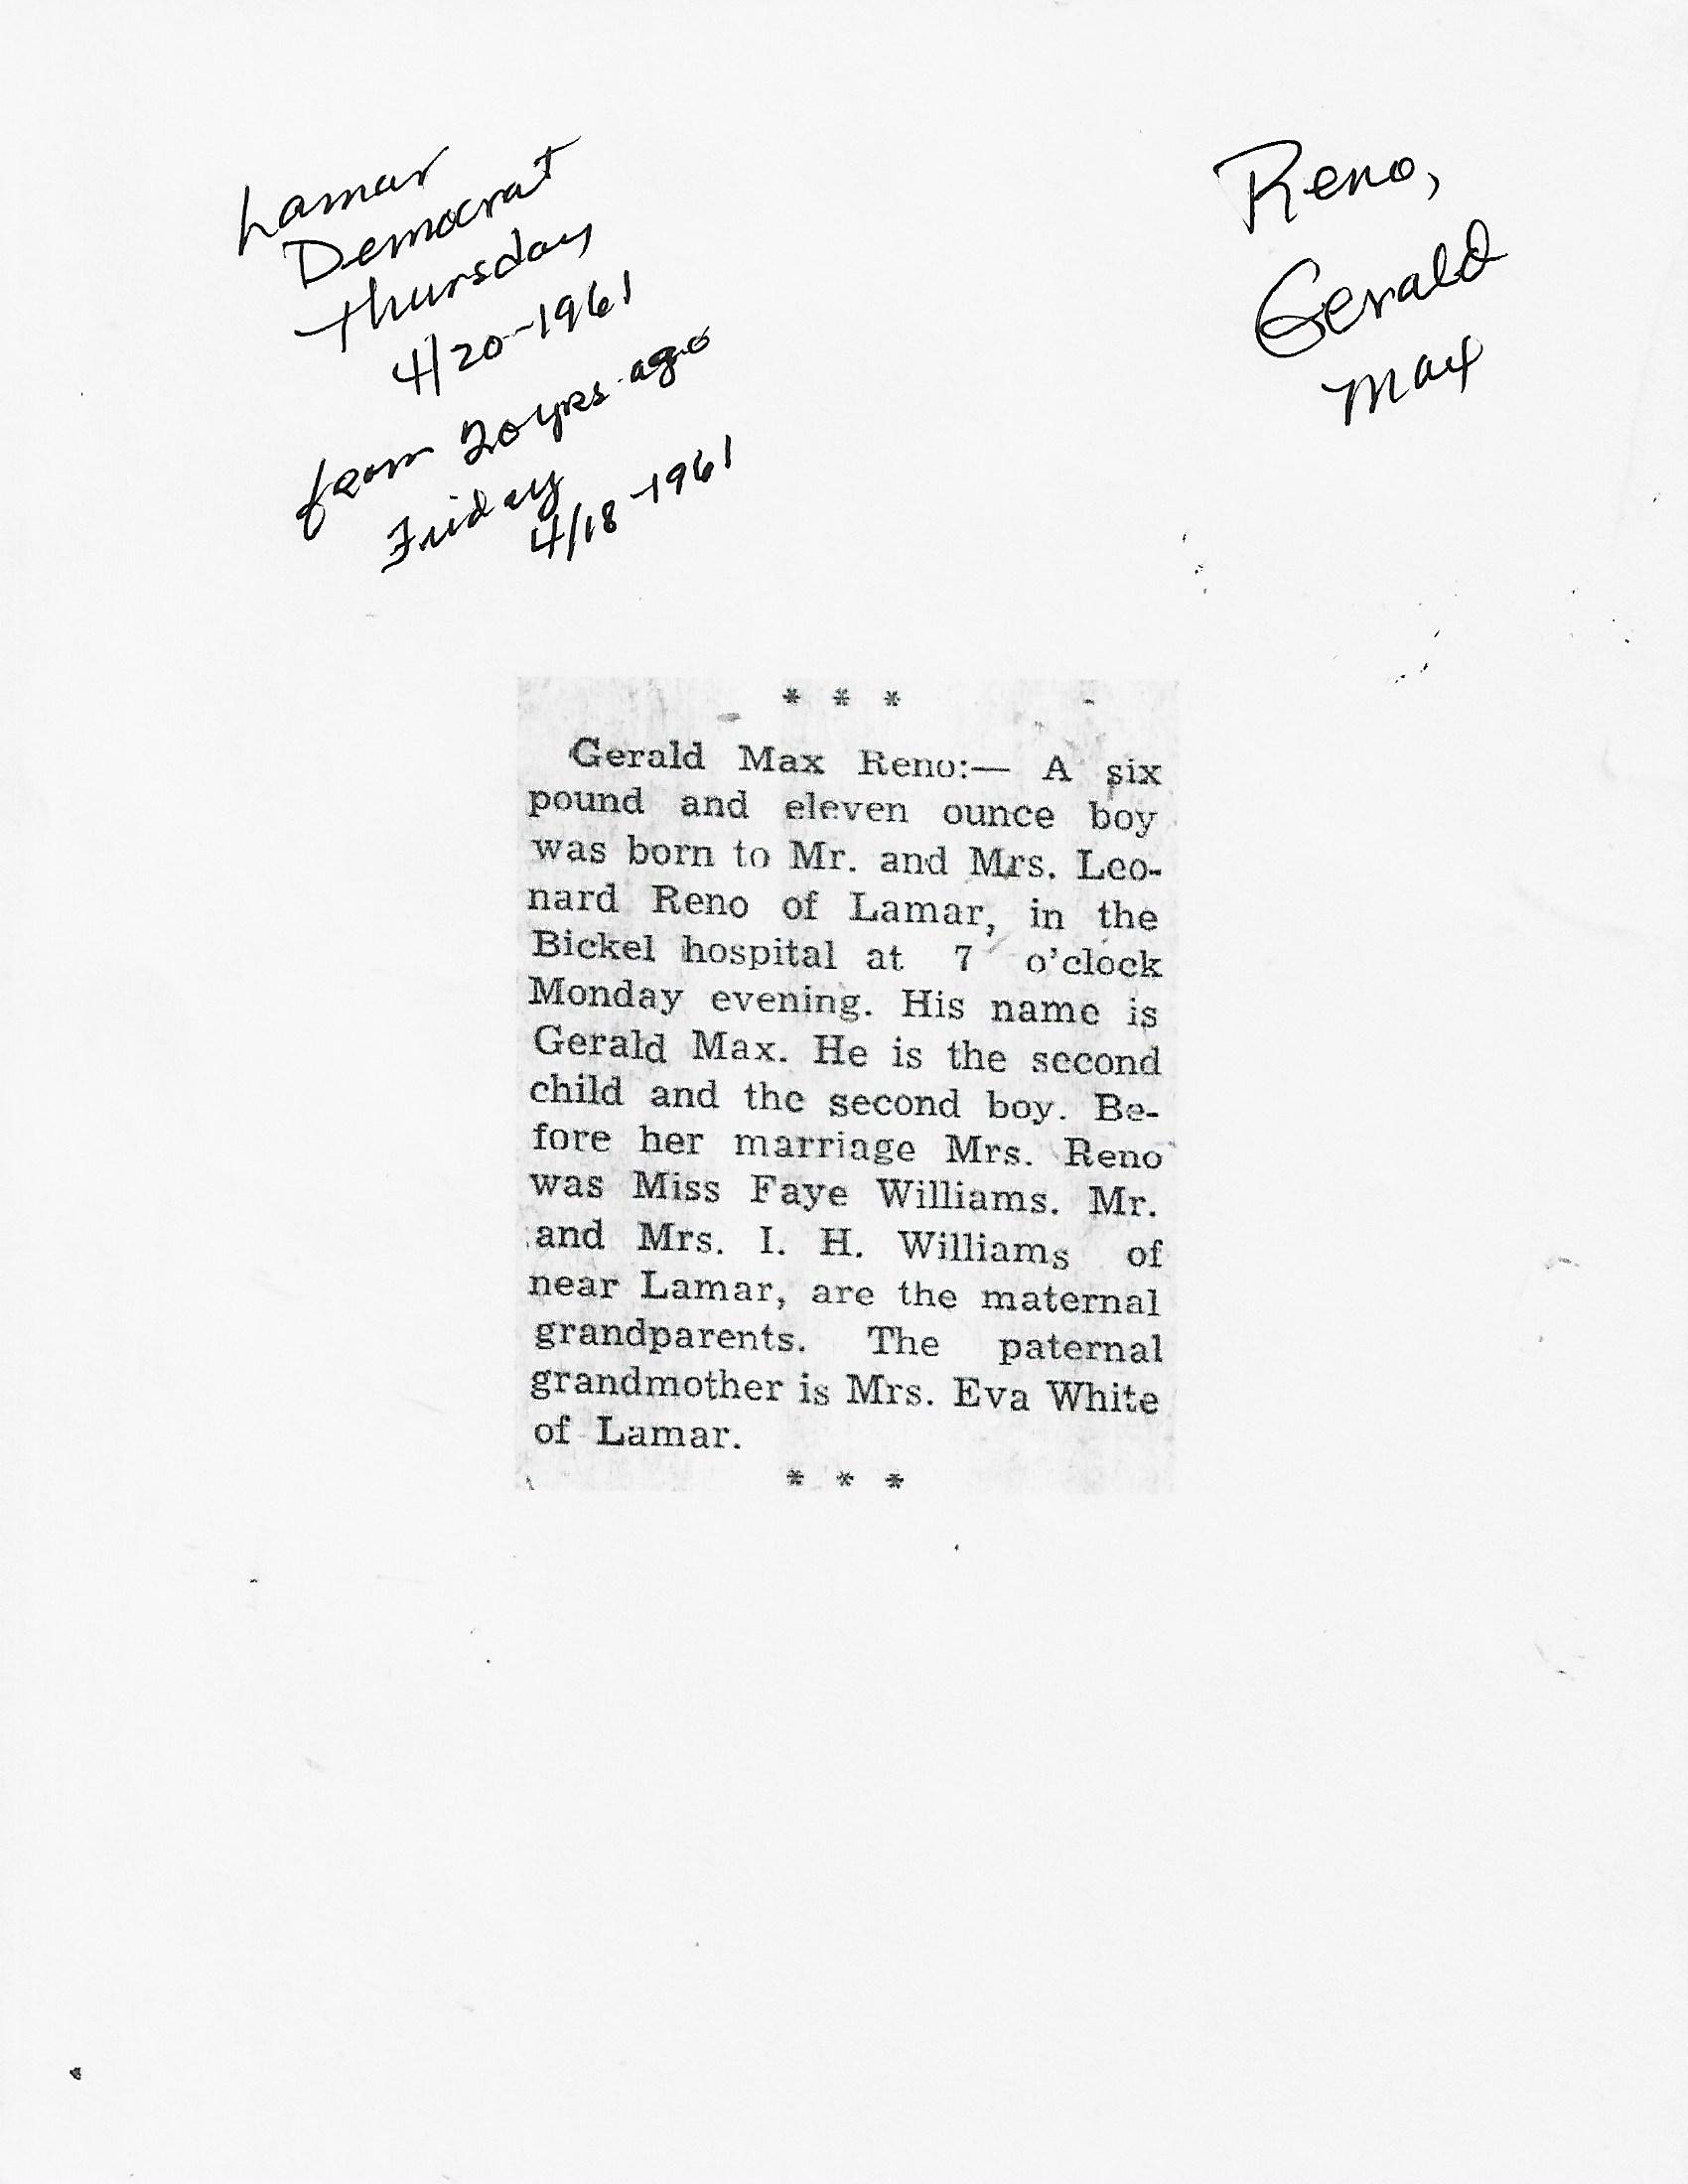 Lamar
Democrat
Thursday
4/20-1961
from 20 yrs. ago
Friday
4/18-1961
Reno,
Gerald
Max
* * *
Gerald Max Reno:— A six
pound and eleven ounce boy
was born to Mr. and Mrs. Leo-
nard Reno of Lamar, in the
Bickel hospital at 7 o'clock
Monday evening. His name is
Gerald Max. He is the second
child and the second boy. Be-
fore her marriage Mrs. Reno
was Miss Faye Williams. Mr.
and Mrs. I. H. Williams of
near Lamar, are the maternal
grandparents. The paternal
grandmother is Mrs. Eva White
of Lamar.
* * *